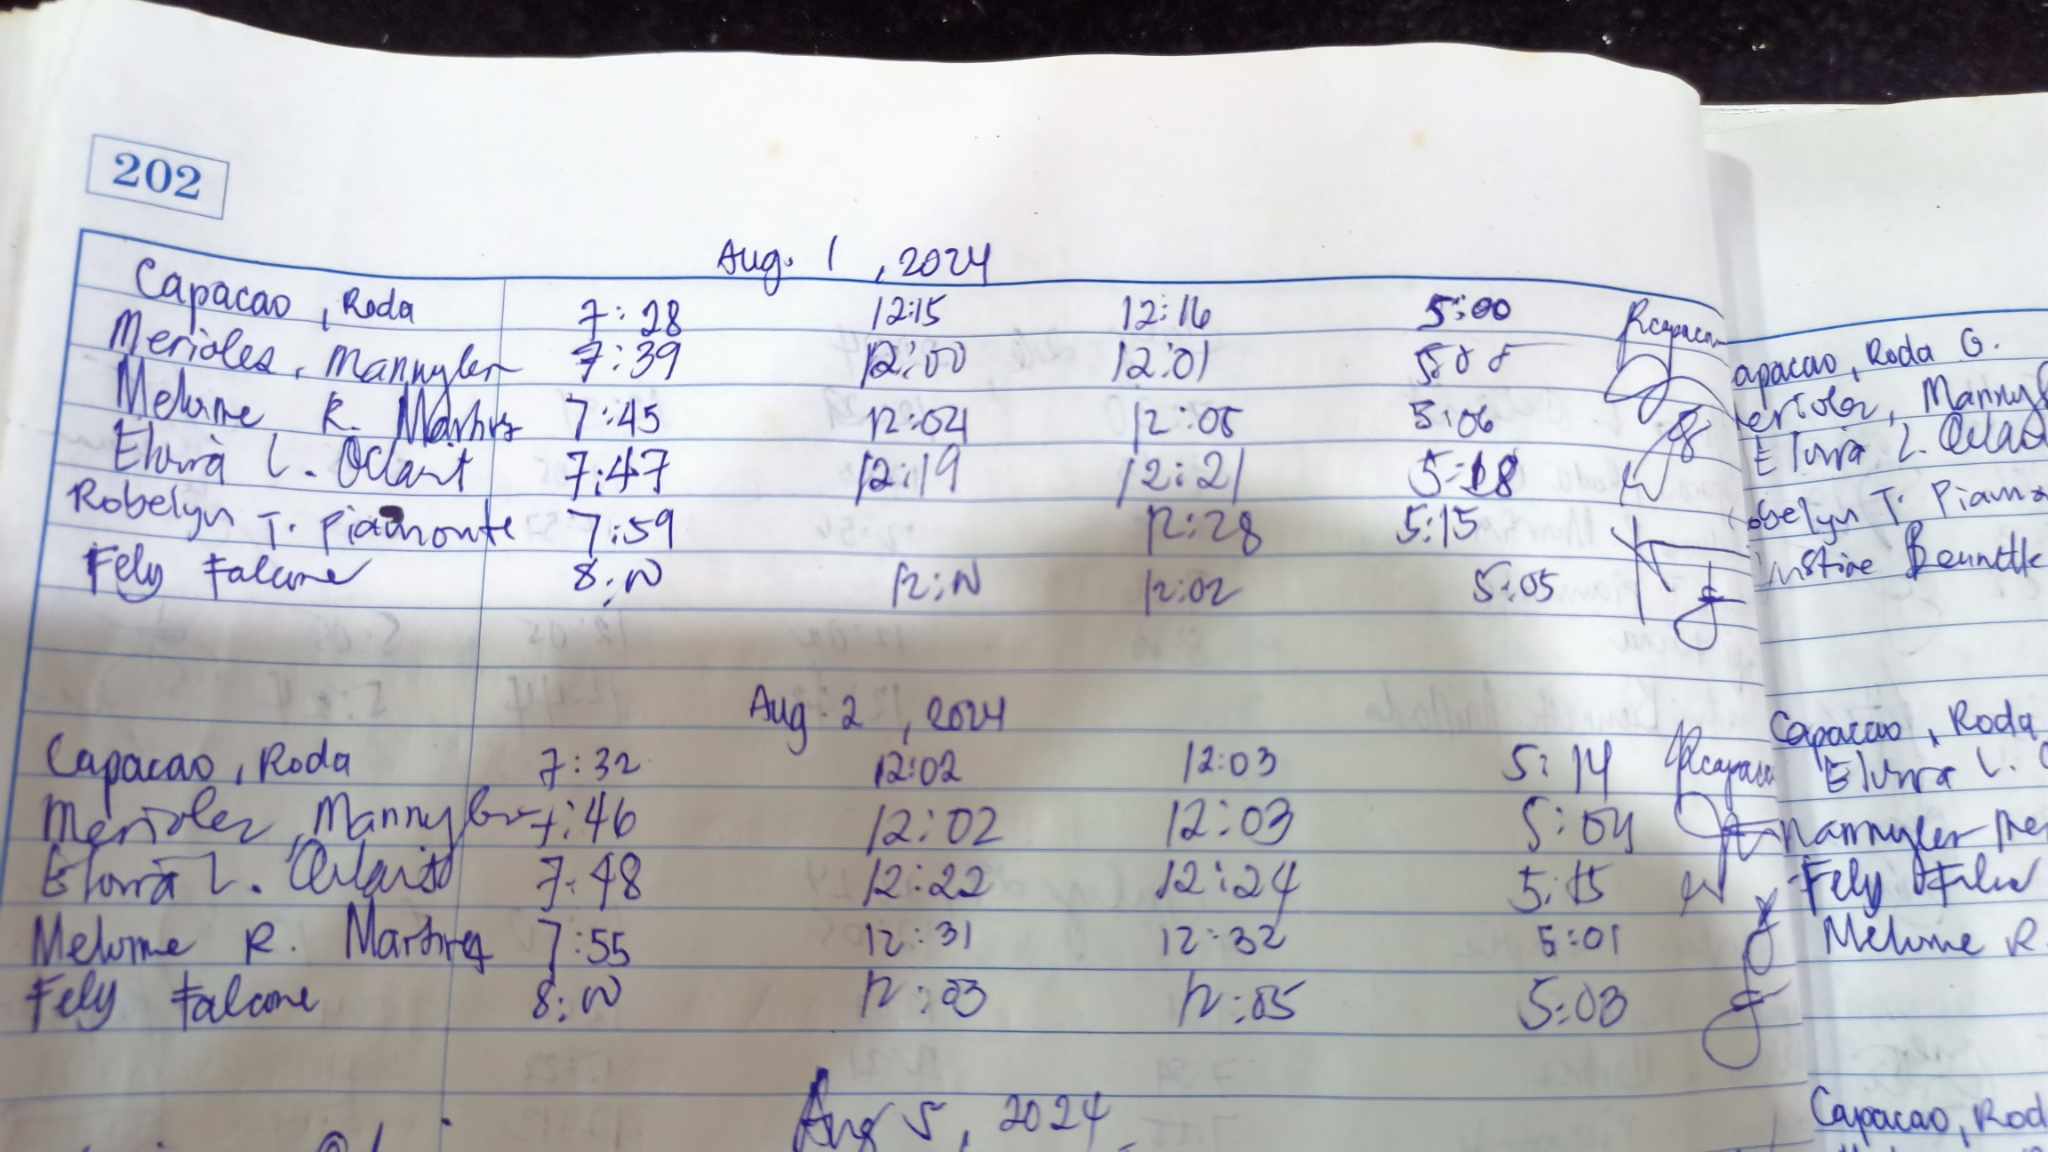 202
Aug. 1, 2024
Capacao, Roda 7:28 12:15 12:16 5:00 Rcapacao
Merioles, Mannyler 7:39 12:00 12:01 5:05
Melvine R. Martirez 7:45 12:04 12:05 5:06
Elvira L. 7:47 12:19 12:21 5:18
Robelyn T. Piamonte 7:59 12:28 5:15
Fely Falcone 8:N 12:N 12:02 5:05
Aug. 2, 2024
Capacao, Roda 7:32 12:02 12:03 5:14 Rcapacao
Merioles, Mannyler 7:46 12:02 12:03 5:04
Elvira L. 7:48 12:22 12:24 5:15
Melvine R. Martirez 7:55 12:31 12:32 5:01
Fely Falcone 8:N 12:03 12:05 5:03
Aug 5, 2024
apacao, Roda G.
erioles, Manny
Elvira L.
obelyn T. Piamo
Capacao, Roda
Elvira L.
Mannyler Me
Fely
Melvine R.
Capacao, Rod